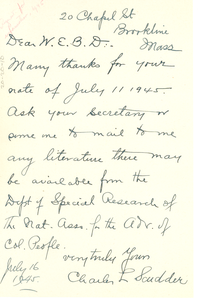 20 Chapel St
Brookline
Mass
Dear W.E.B.D.
Many thanks for your
note of July 11 1945.
Ask your Secretary or
some one to mail to me
any literature there may
be available from the
Dept of Special Research of
The Nat. Asso. for the Adv. of
Col. People.
very truly Yours
Charles L Scudder
July 16
1945